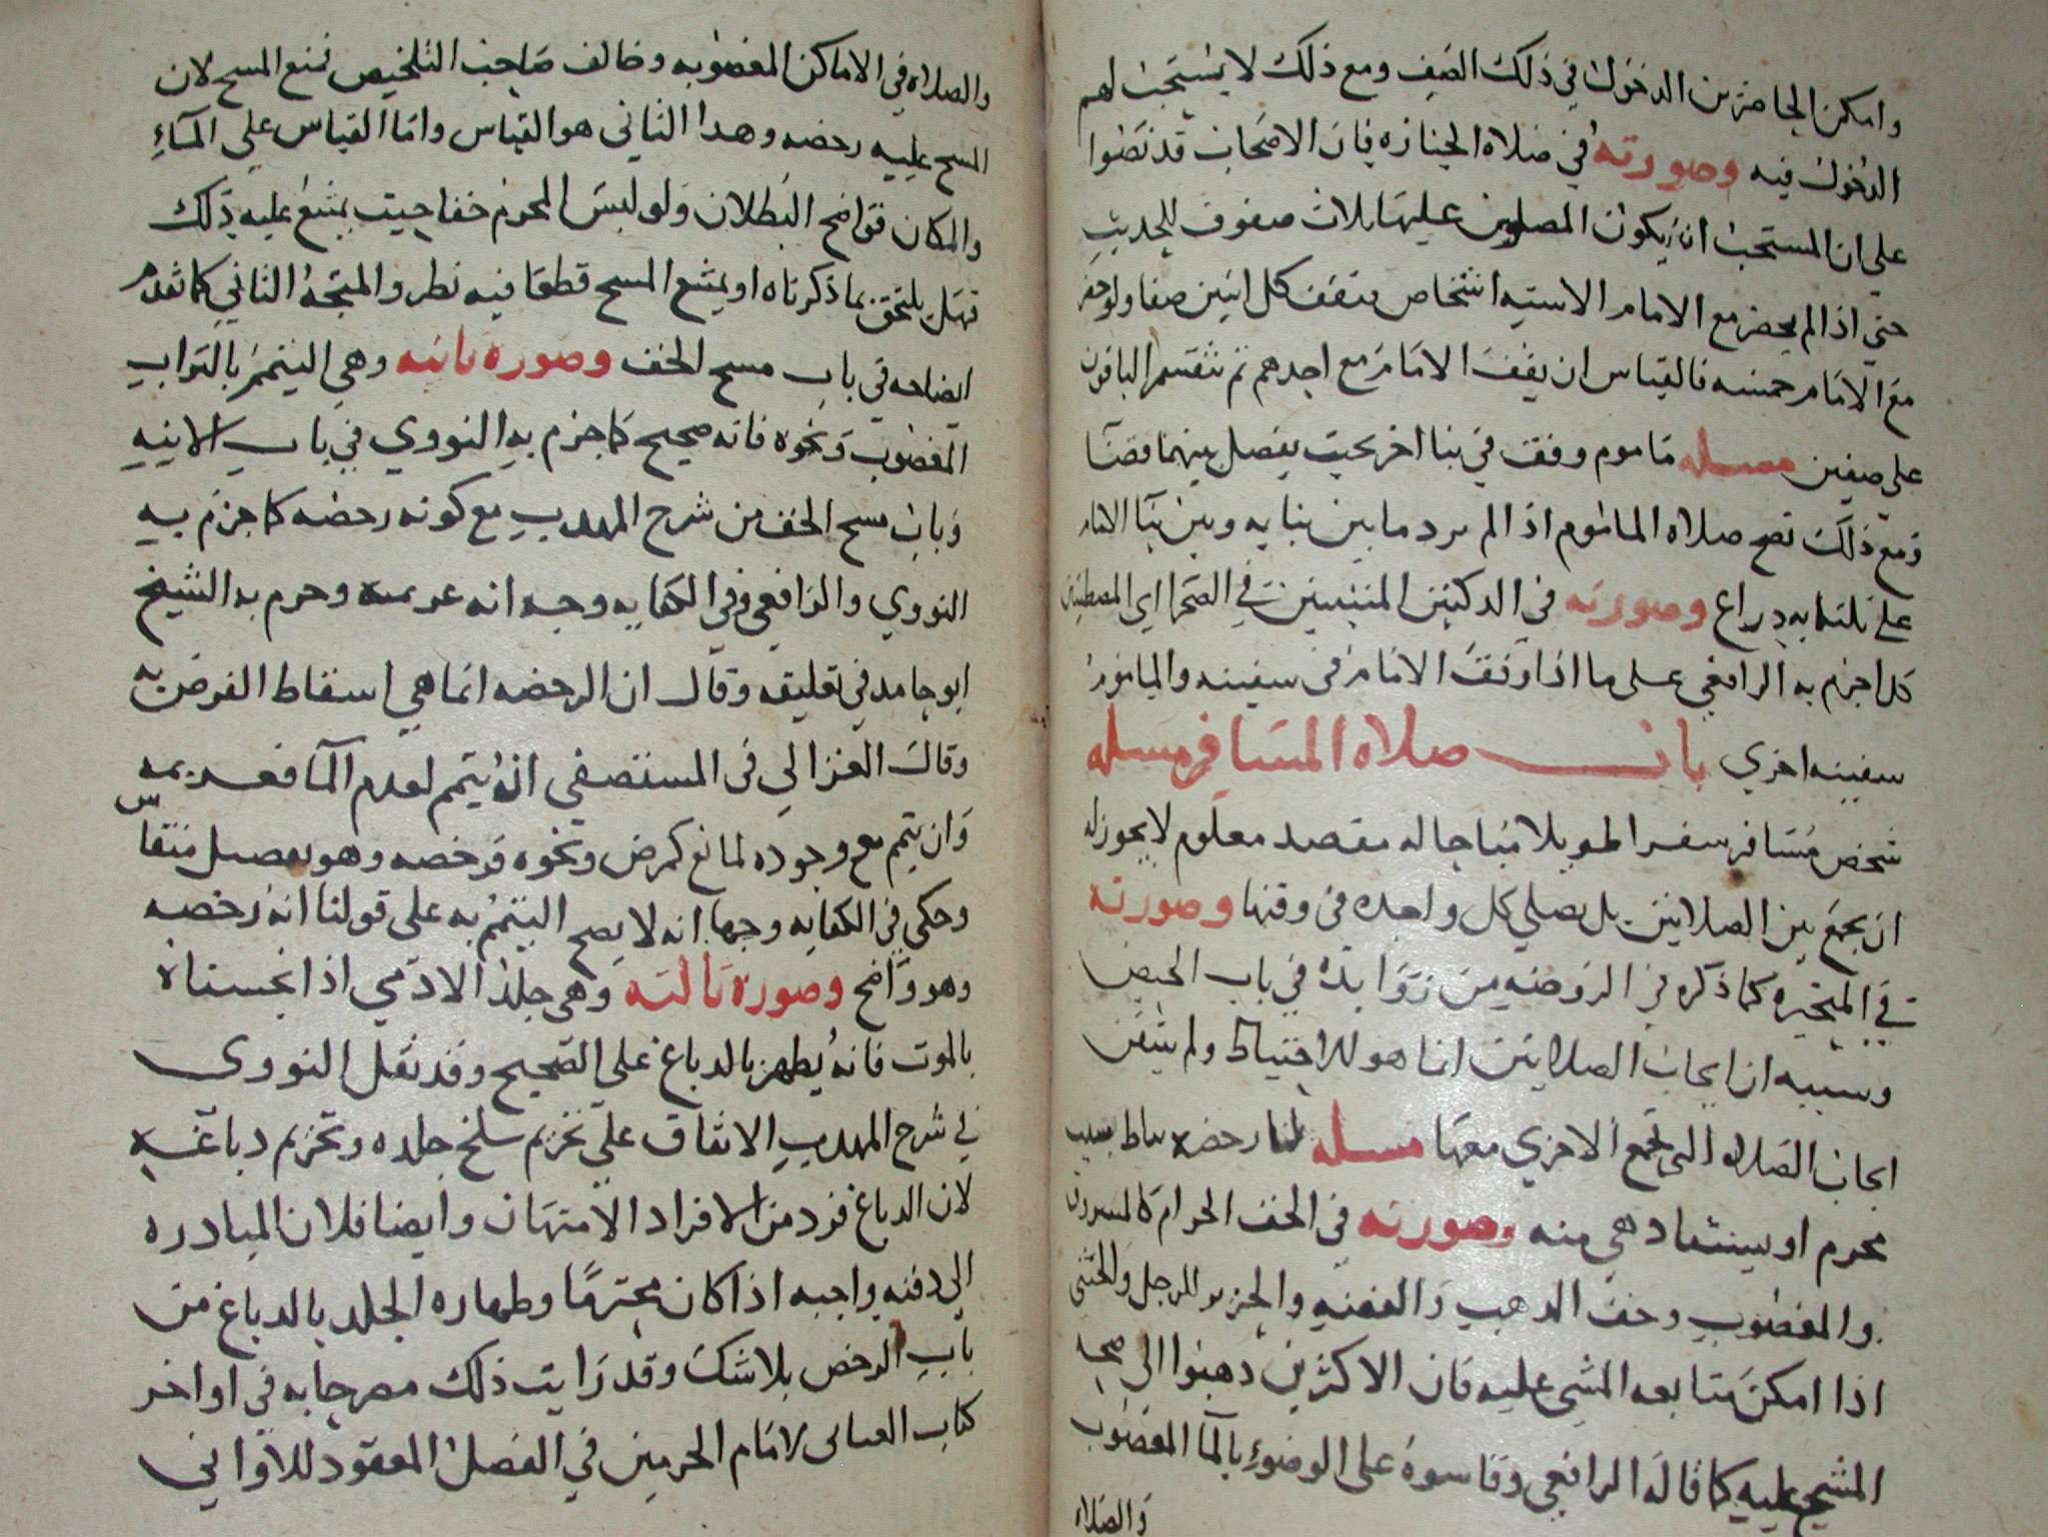 وامكن الحاضرين الدخول في ذلك الصف ومع ذلك لا يستحب لهم
الدخول فيه وصورته في صلاه الجنازه فان الاصحاب قد نصوا
على ان المستحب ان يكون المصلين عليها ثلاث صفوف للحديث
حتى اذا لم يحضر مع الامام الا سته اشخاص فيقف كل اثنين صفا ولو حضر
مع الامام خمسه فالقياس ان يقف الامام مع احدهم ثم تنقسم الباقون
على صفين مسله ماموم وقف في بنا اخر بحيث يفصل بينهما فضا
ومع ذلك تصح صلاه الماموم اذا لم يزد ما بين بنايه وبين بنا الامام
على ثلثمايه ذراع وصورته في الدكتين المبنيتين في الصحرا اي المصطبتين
كذا جزم به الرافعي على ما اذا وقف الامام في سفينه والماموم
سفينه اخري باب صلاه المسافر مسله
شخص مسافر سفرا طويلا مباحا له مقصد معلوم لا يجوز له
ان يجمع بين الصلاتين بل يصلي كل واحده في وقتها وصورته
في المتحيره كما ذكره في الروضه من زوايده في باب الحيض
وسببه ان ايجاب الصلاتين انما هو للاحتياط ولم يتيقن
ايجاب الصلاه التي تجمع الاخري معها مسله لنا رخصه تناط بسبب
محرم او يستفاد هي منه وصورته في الخف الحرام كالمسروق
والمغصوب وخف الذهب والفضه والحرير للرجل والخنثى
اذا امكن متابعه المشي عليه فان الاكثرين ذهبوا الى صحه
المسح عليه كما قاله الرافعي وقاسوه على الوضوء بالما المغصوب
والصلاه
والصلاه في الاماكن المغصوبه وخالف صاحب التلخيص فمنع المسح لان
المسح عليه رخصه وهذا الثاني هو القياس واما القياس على الماء
والمكان فواضح البطلان ولو لبس المحرم خفا حيث يمتنع عليه ذلك
فهل يلتحق بما ذكرناه او يمتنع المسح قطعا فيه نظر والمتجه الثاني كما تقدم
ايضاحه في باب مسح الخف وصوره ثانيه وهي التيمم بالتراب
المغصوب ونحوه فانه صحيح كما جزم به النووي في باب الانيه
وباب مسح الخف من شرح المهذب مع كونه رخصه كما جزم به
النووي والرافعي وفي الكفايه وجه انه عزيمه وجزم به الشيخ
ابو حامد في تعليقه وقال ان الرخصه انما هي اسقاط الفرض به
وقال الغزالي في المستصفي انه يتيمم لعدم الما فعزيمه
وان تيمم مع وجوده لمانع كمرض ونحوه فرخصه وهو تفصيل منقاس
وحكي في الكفايه وجها انه لا يصح التيمم به على قولنا انه رخصه
وهو واضح وصوره ثالثه وهي جلد الادمي اذا نجسناه
بالموت فانه يطهر بالدباغ على الصحيح وقد نقل النووي
في شرح المهذب الاتفاق على تحريم سلخ جلده وتحريم دباغه
لان الدباغ فرد من افراد الامتهان وايضا فلان المبادره
الى دفنه واجبه اذا كان محترما وطهاره الجلد بالدباغ من
باب الرخص بلا شك وقد رايت ذلك مصرحا به في اواخر
كتاب الغياثي لامام الحرمين في الفصل المعقود للاواني